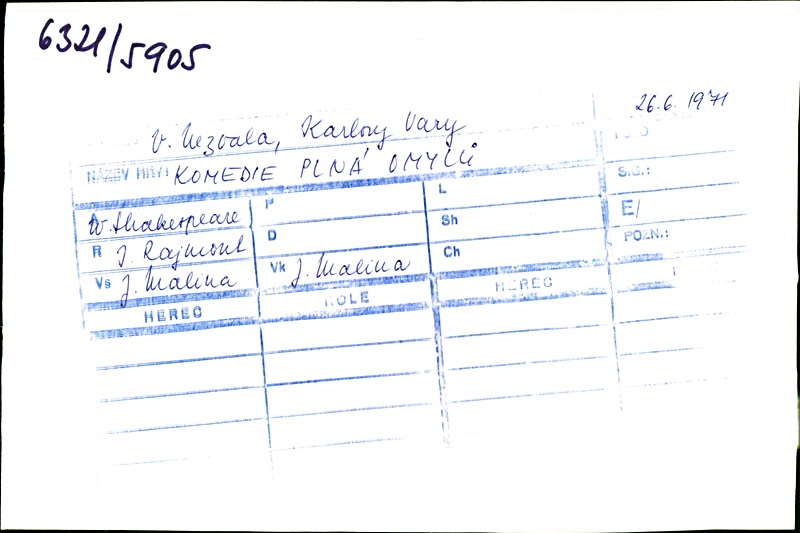 6321/5905
26.6. 1971
V. Nezvala, Karlovy Vary
NÁZEV HRY: KOMEDIE PLNÁ OMYLŮ
SIG.:
A W. Shakespeare P L E/
R J. Rajmont D Sh POZN.:
Vs J. Malina Vk J. Malina Ch
HEREC ROLE HEREC